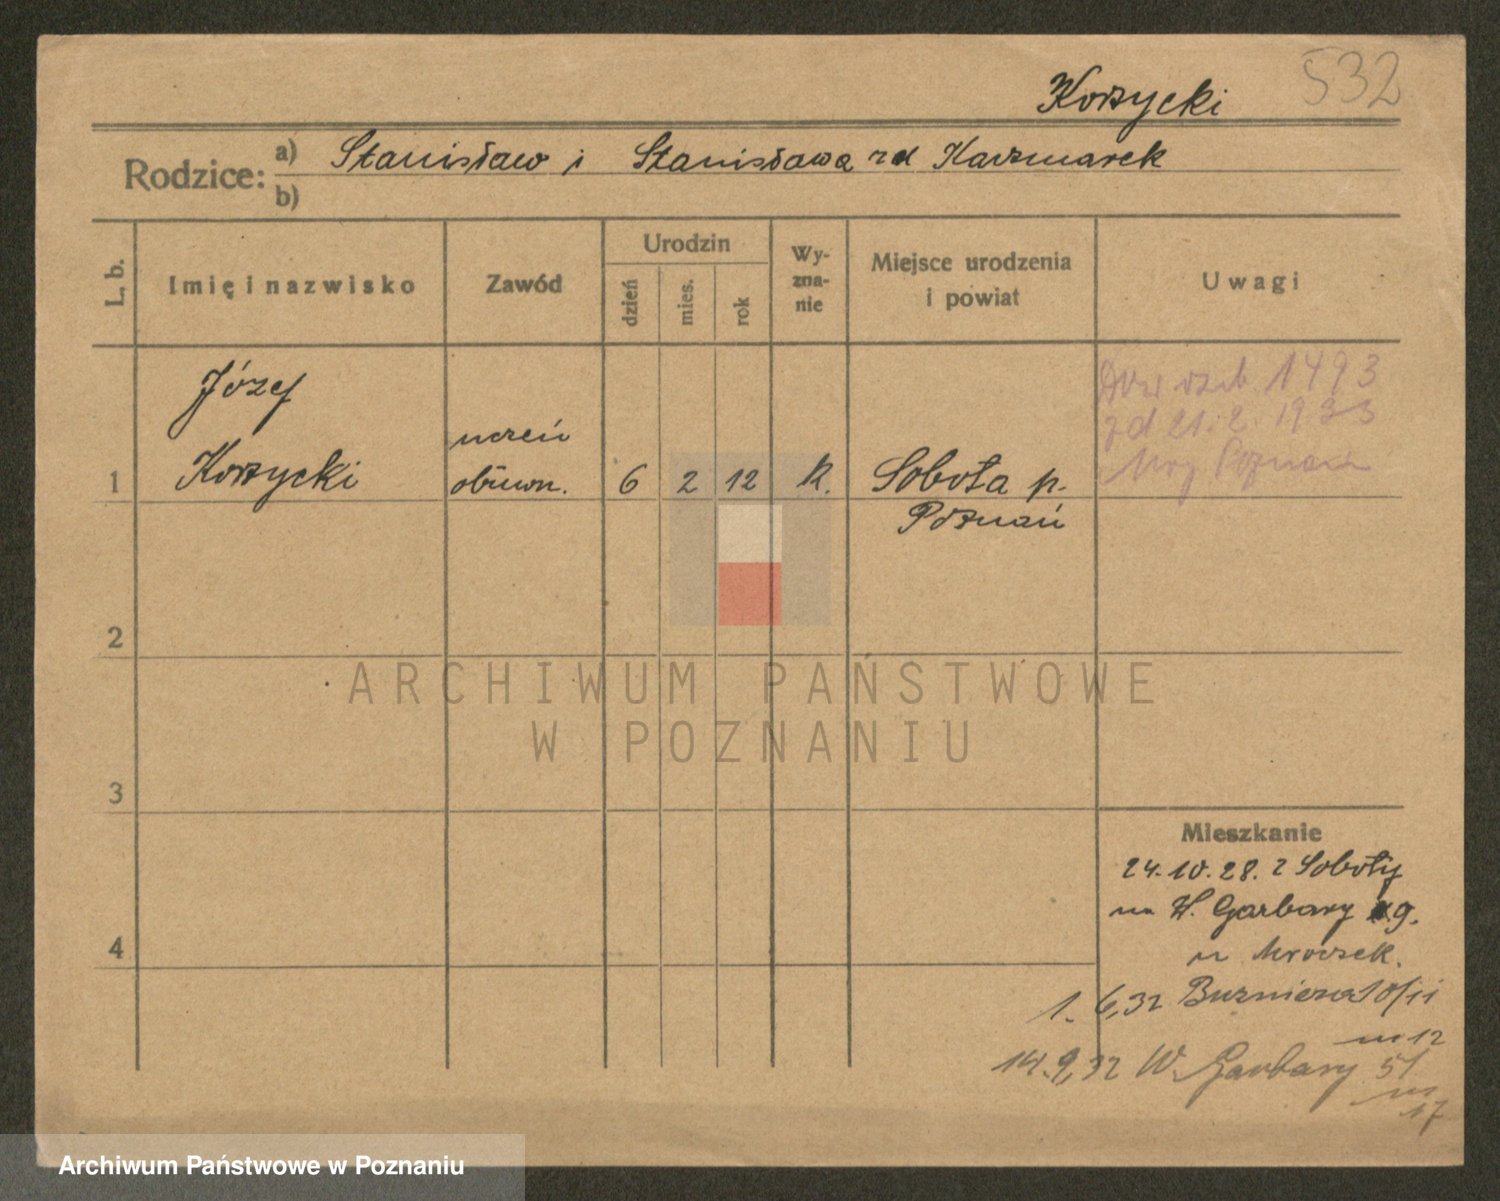 532
Korzycki
Rodzice: a) Stanisław i Stanisława zd Kaczmarek
b)
L. b.
Imię i nazwisko
Zawód
Urodzin
dzień
mies.
rok
Wy-
zna-
nie
Miejsce urodzenia
i powiat
Uwagi
Józef
1 Korzycki
uczeń
obuwn.
6 2 12 k. Sobota p.
Poznań
Dow osob 1493
zd 21.2.1933
Poznań
2
3
4
Mieszkanie
24.10.28. z Soboty
na W. Garbary 9.
u Mroczek.
1. 6,32 10/11
m 12
14.9,32 W Garbary 51
m
17
ARCHIWUM PAŃSTWOWE
W POZNANIU
Archiwum Państwowe w Poznaniu